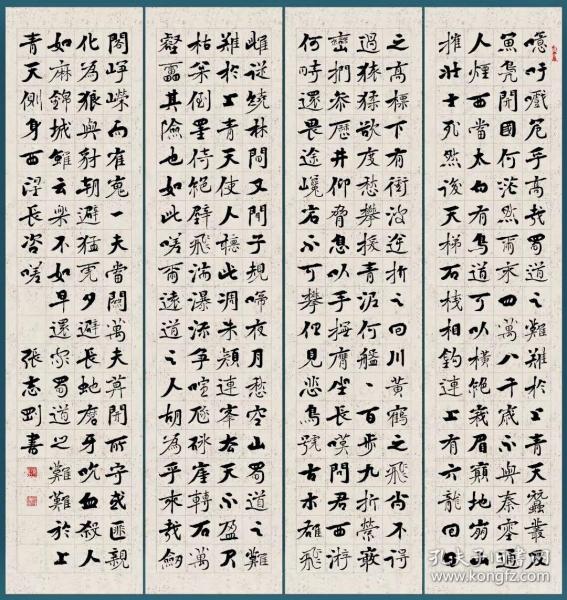 噫吁嚱危乎高哉蜀道之難難於上青天蠶叢及
魚鳧開國何茫然爾來四萬八千歲不與秦塞通
人煙西當太白有鳥道可以橫絕峨眉巔地崩山
摧壯士死然後天梯石棧相鉤連上有六龍回日
之高標下有衝波逆折之回川黃鶴之飛尚不得
過猿猱欲度愁攀援青泥何盤丶百步九折縈巖
巒捫參歷井仰脅息以手撫膺坐長嘆問君西遊
何時還畏途巉岩不可攀但見悲鳥號古木雄飛
雌從繞林間又聞子規啼夜月愁空山蜀道之難
難於上青天使人聽此凋朱顏連峯去天不盈尺
枯松倒掛倚絕壁飛湍瀑流爭喧豗砯崖轉石萬
壑雷其險也如此嗟爾遠道之人胡為乎來哉劍
閣崢嶸而崔嵬一夫當關萬夫莫開所守或匪親
化為狼與豺朝避猛虎夕避長蛇磨牙吮血殺人
如麻錦城雖云樂不如早還家蜀道之難難於上
青天側身西望長咨嗟 張志剛書
孔夫子旧书网
www.kongfz.com